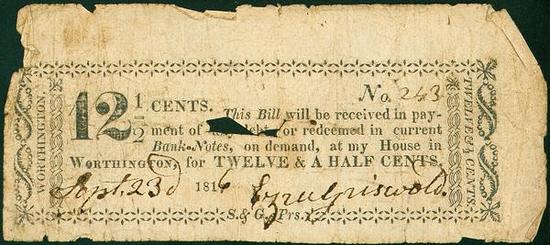 No. 243
12 1/2 CENTS. This Bill will be received in pay-
ment of or redeemed in current
Bank-Notes, on demand, at my House in
WORTHINGTON, for TWELVE & A HALF CENTS.
Sept. 23d 1816 Ezra Griswold.
S. & G. Prs.
WORTHINGTON
TWELVE & ½ CENTS.